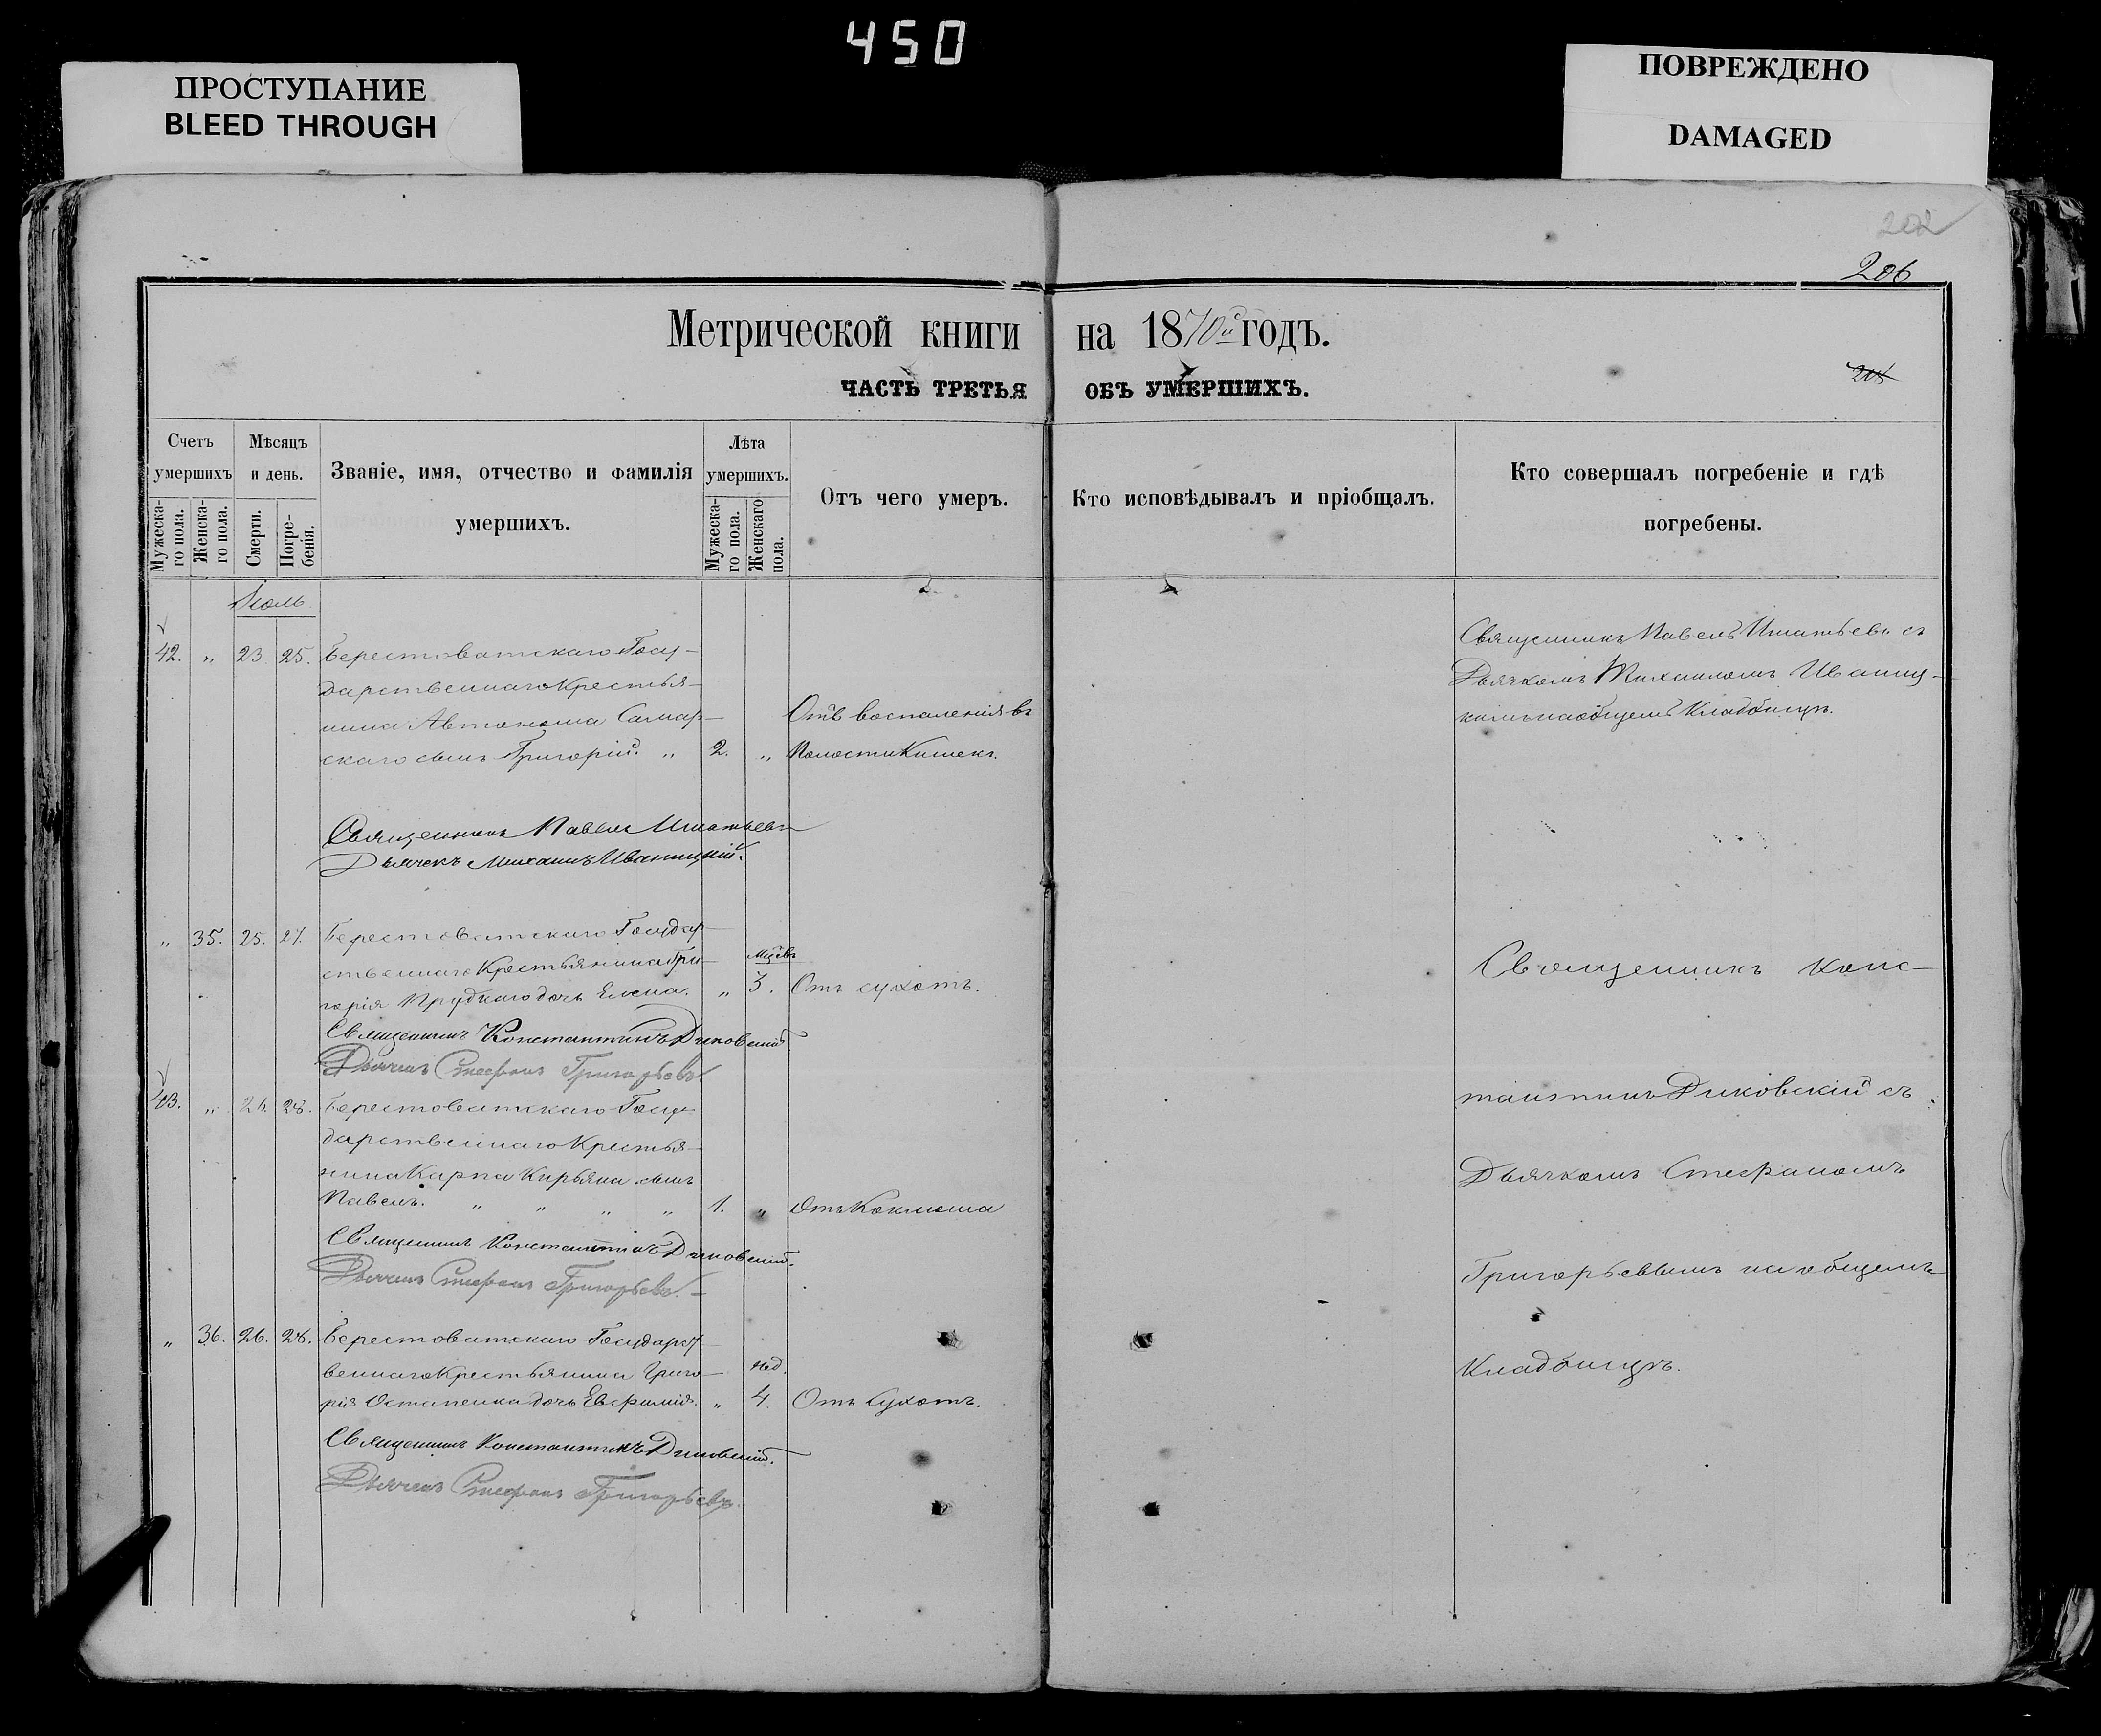 450
ПРОСТУПАНИЕ
BLEED THROUGH
ПОВРЕЖДЕНО
DAMAGED
202
206
Метрической книги на 1870й годъ.
ЧАСТЬ ТРЕТЬЯ ОБЪ УМЕРШИХЪ.
Счетъ умершихъ
Мужеска-го пола.
Женска-го пола.
Мѣсяцъ и день.
Смерти.
Погре-бенія.
Званіе, имя, отчество и фамилія
умершихъ.
Лѣта умершихъ.
Мужеска-го пола.
Женскаго пола.
Отъ чего умеръ.
Кто исповѣдывалъ и пріобщалъ.
Кто совершалъ погребеніе и гдѣ
погребены.
Іюль
42. „ 23. 25. Берестоватскаго Госу-
дарственнаго Крестья-
нина Автонома Самар-
скаго сынъ Григорій. „ 2. „
Отъ воспаленія въ
Полости Кишекъ.
Священникъ Павелъ Игнатьевъ съ
Дьячкомъ Михаиломъ Иваниц-
кимъ на общемъ Кладбищѣ.
Священникъ Павелъ Игнатьевъ
Дьячекъ Михаилъ Иваницкій.
„ 35. 25. 27. Берестоватскаго Государ-
ственнаго Крестьянина Гри-
горія Прудкаго дочь Елена. „ мѣсв 3. Отъ сухотъ.
Священникъ Константинъ Диковскій
Дьячекъ Стефанъ Григорьевъ
43. „ 26. 28. Берестоватскаго Госу-
дарственнаго Крестья-
нина Карпа Кирьяна сынъ
Павелъ. „ „ „ „ 1. „ Отъ Коклюша
Священникъ Константинъ Диковскій.
Дьячекъ Стефанъ Григорьевъ.
„ 36. 26. 28. Берестоватскаго Государст-
веннаго Крестьянина Григо-
рія Остапенка дочь Евфимія. „ нед. 4. Отъ Сухотъ.
Священникъ Константинъ Диковскій.
Дьячекъ Стефанъ Григорьевъ.
Священникъ Конс-
тантинъ Диковскій съ
Дьячкомъ Стефаномъ
Григорьевымъ на общемъ
Кладбищѣ.